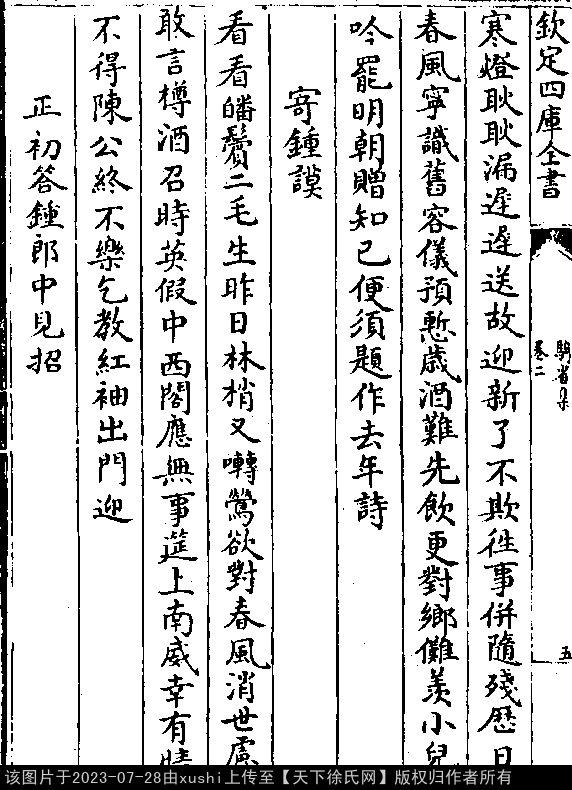 欽定四庫全書
騎省集
卷二
五
寒燈耿耿漏遲遲送故迎新了不欺徃事併隨殘厯日
春風寧識舊容儀預慙歲酒難先飲更對鄉儺羡小兒
吟罷明朝贈知已便須題作去年詩
寄鍾謨
看看皤鬢二毛生昨日林梢又囀鶯欲對春風消世慮
敢言樽酒召時英假中西閣應無事筵上南威幸有情
不得陳公終不樂乞教紅袖出門迎
正初答鍾郎中見招
该图片于2023-07-28由xushi上传至【天下徐氏网】版权归作者所有